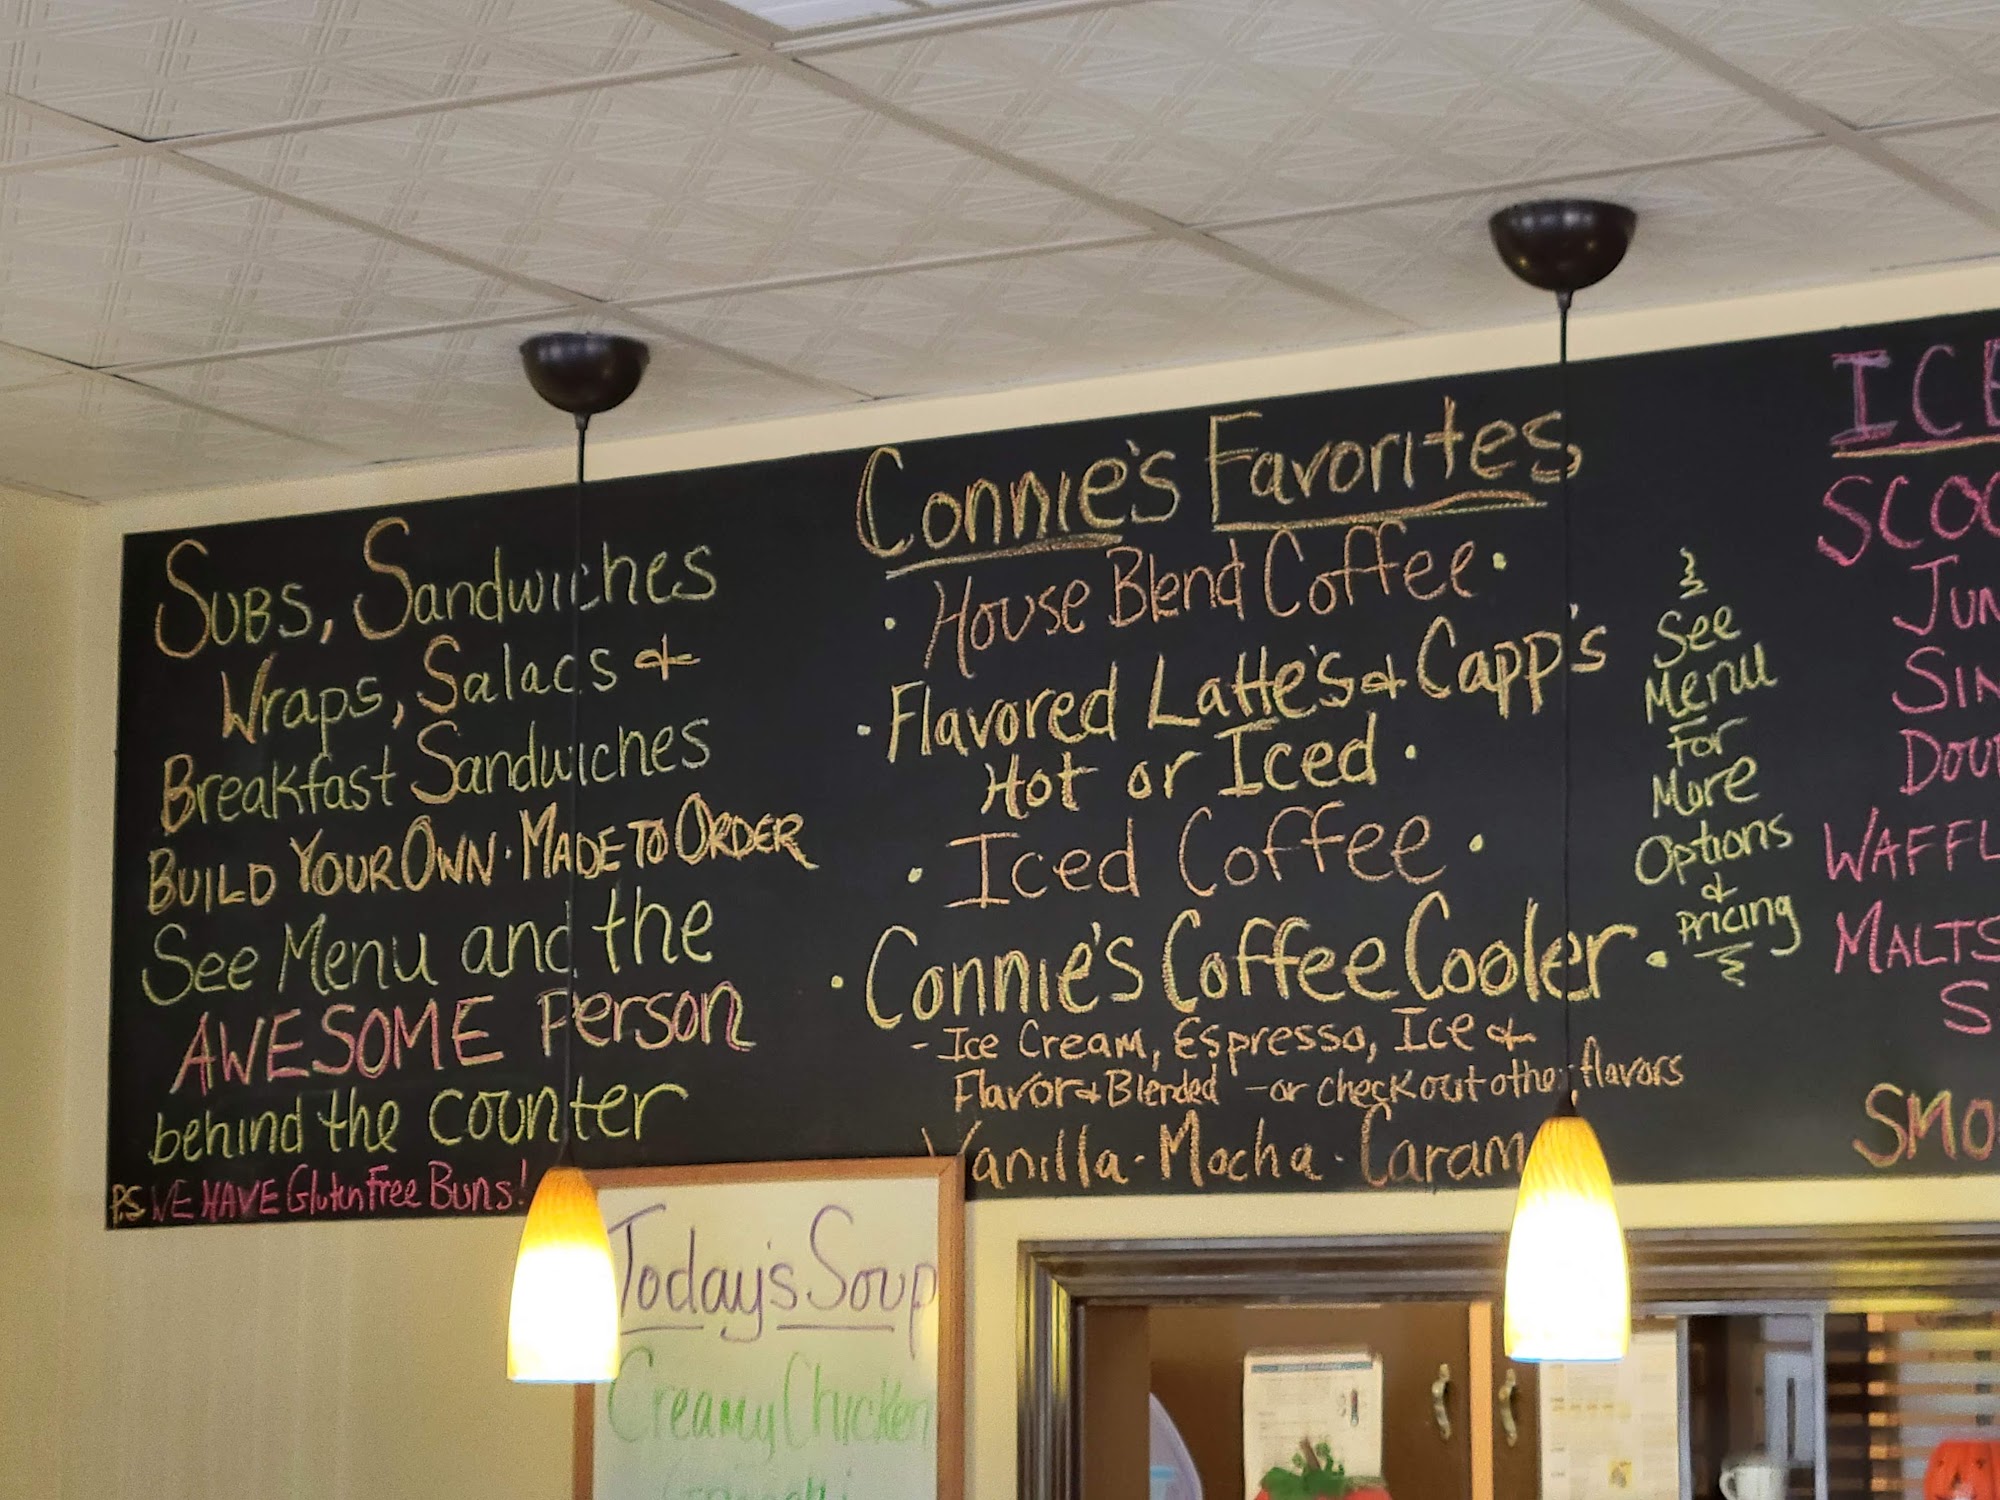 Subs, Sandwiches
Wraps, Salads &
Breakfast Sandwiches
BUILD YOUR OWN · MADE TO ORDER
See Menu and the
AWESOME Person
behind the counter
P.S. WE HAVE Gluten Free Buns!
Connie's Favorites
· House Blend Coffee ·
· Flavored Latte's & Capp's
Hot or Iced ·
· Iced Coffee ·
· Connie's Coffee Cooler ·
- Ice Cream, Espresso, Ice &
Flavor & Blended - or check out other flavors
Vanilla · Mocha · Caram
See
Menu
for
More
Options
&
Pricing
ICE
SCOO
JUN
SIN
DOU
WAFFL
MALTS
S
SMO
Today's Soup
Creamy Chicken
Gnocchi